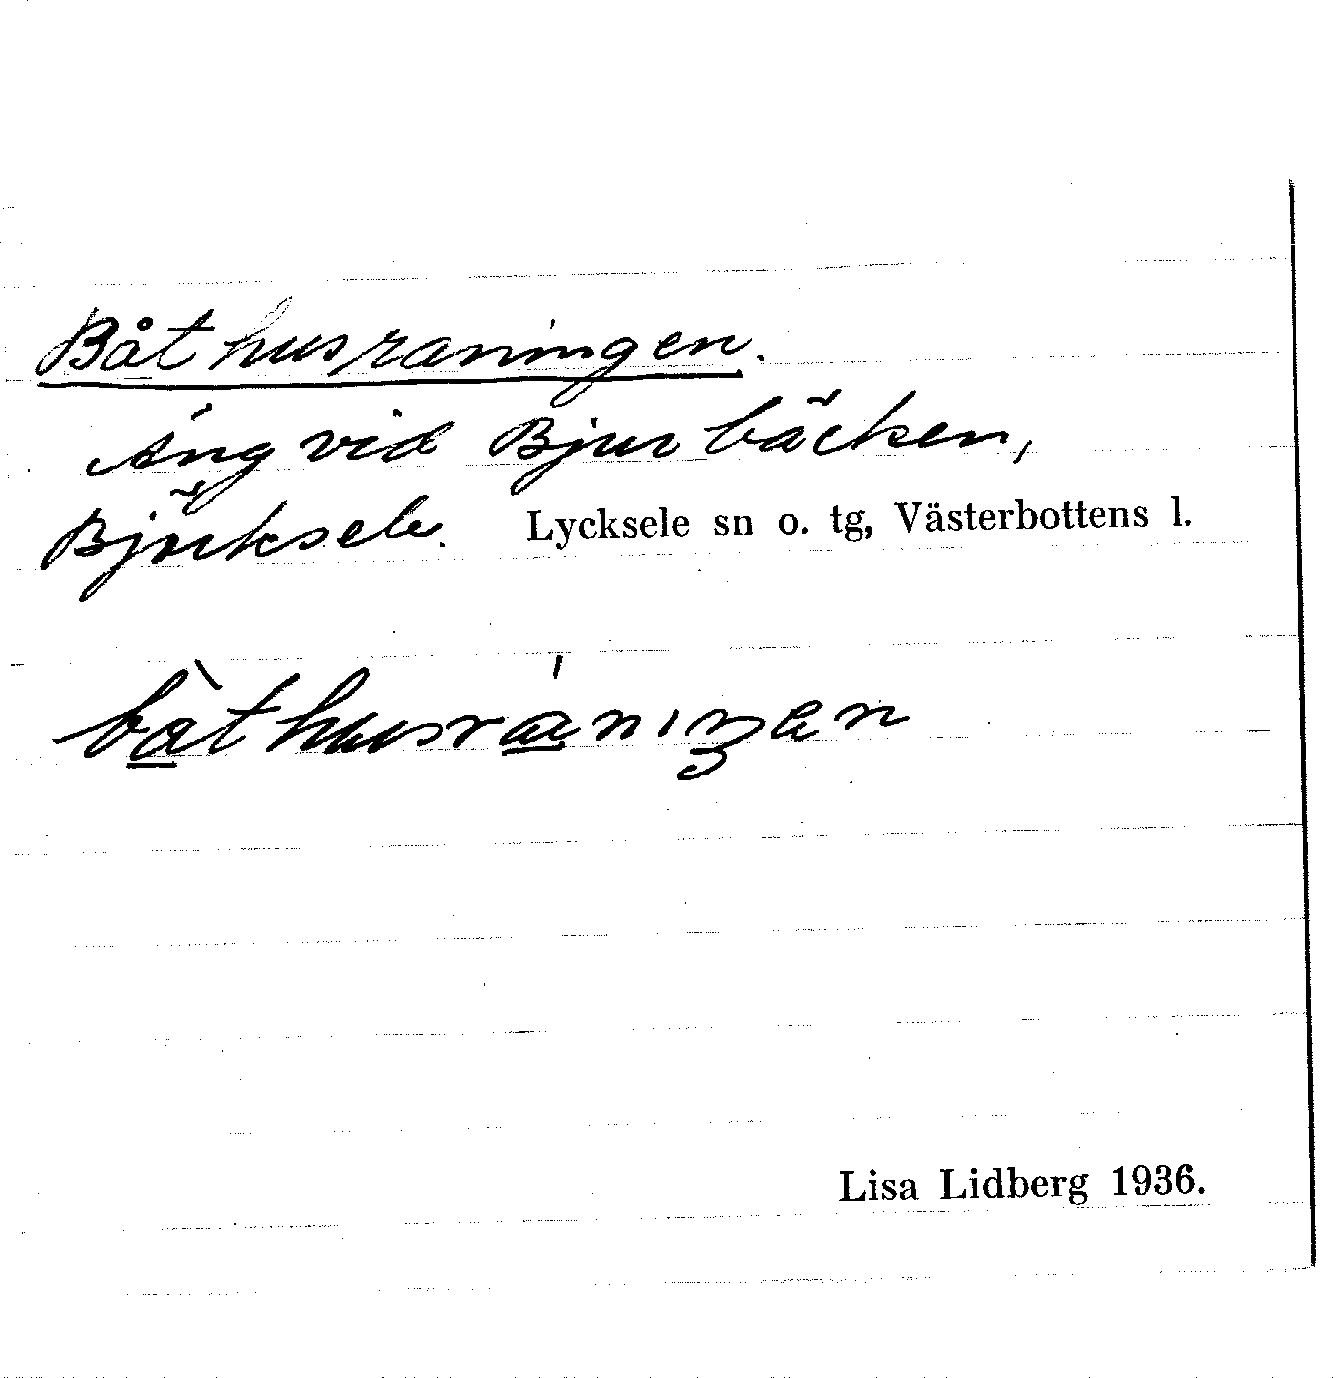 Båthusraningen.
Äng vid Bjurbäcken,
Björksele. Lycksele sn o. tg, Västerbottens l.
Lisa Lidberg 1936.